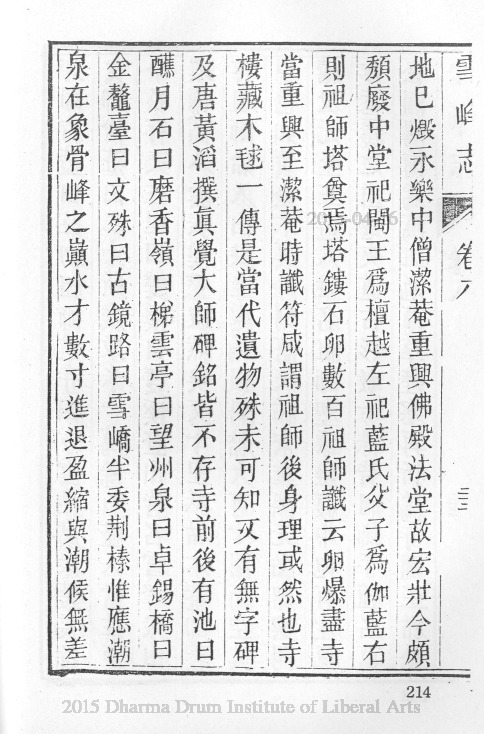 雪峰志
卷六
三三
地已燬永樂中僧潔菴重興佛殿法堂故宏壯今頗
頽廢中堂祀閩王爲檀越左祀藍氏父子爲伽藍右
則祖師塔奠焉塔鏤石卵數百祖師讖云卵爆盡寺
當重興至潔菴時讖符咸謂祖師後身理或然也寺
樓藏木毬一傳是當代遺物殊未可知又有無字碑
及唐黃滔撰眞覺大師碑銘皆不存寺前後有池曰
醮月石曰磨香嶺曰梯雲亭曰望州泉曰卓錫橋曰
金鼇臺曰文殊曰古鏡路曰雪嶠半委荆榛惟應潮
泉在象骨峰之巔水才數寸進退盈縮與潮候無差
214
2015 Dharma Drum Institute of Liberal Arts